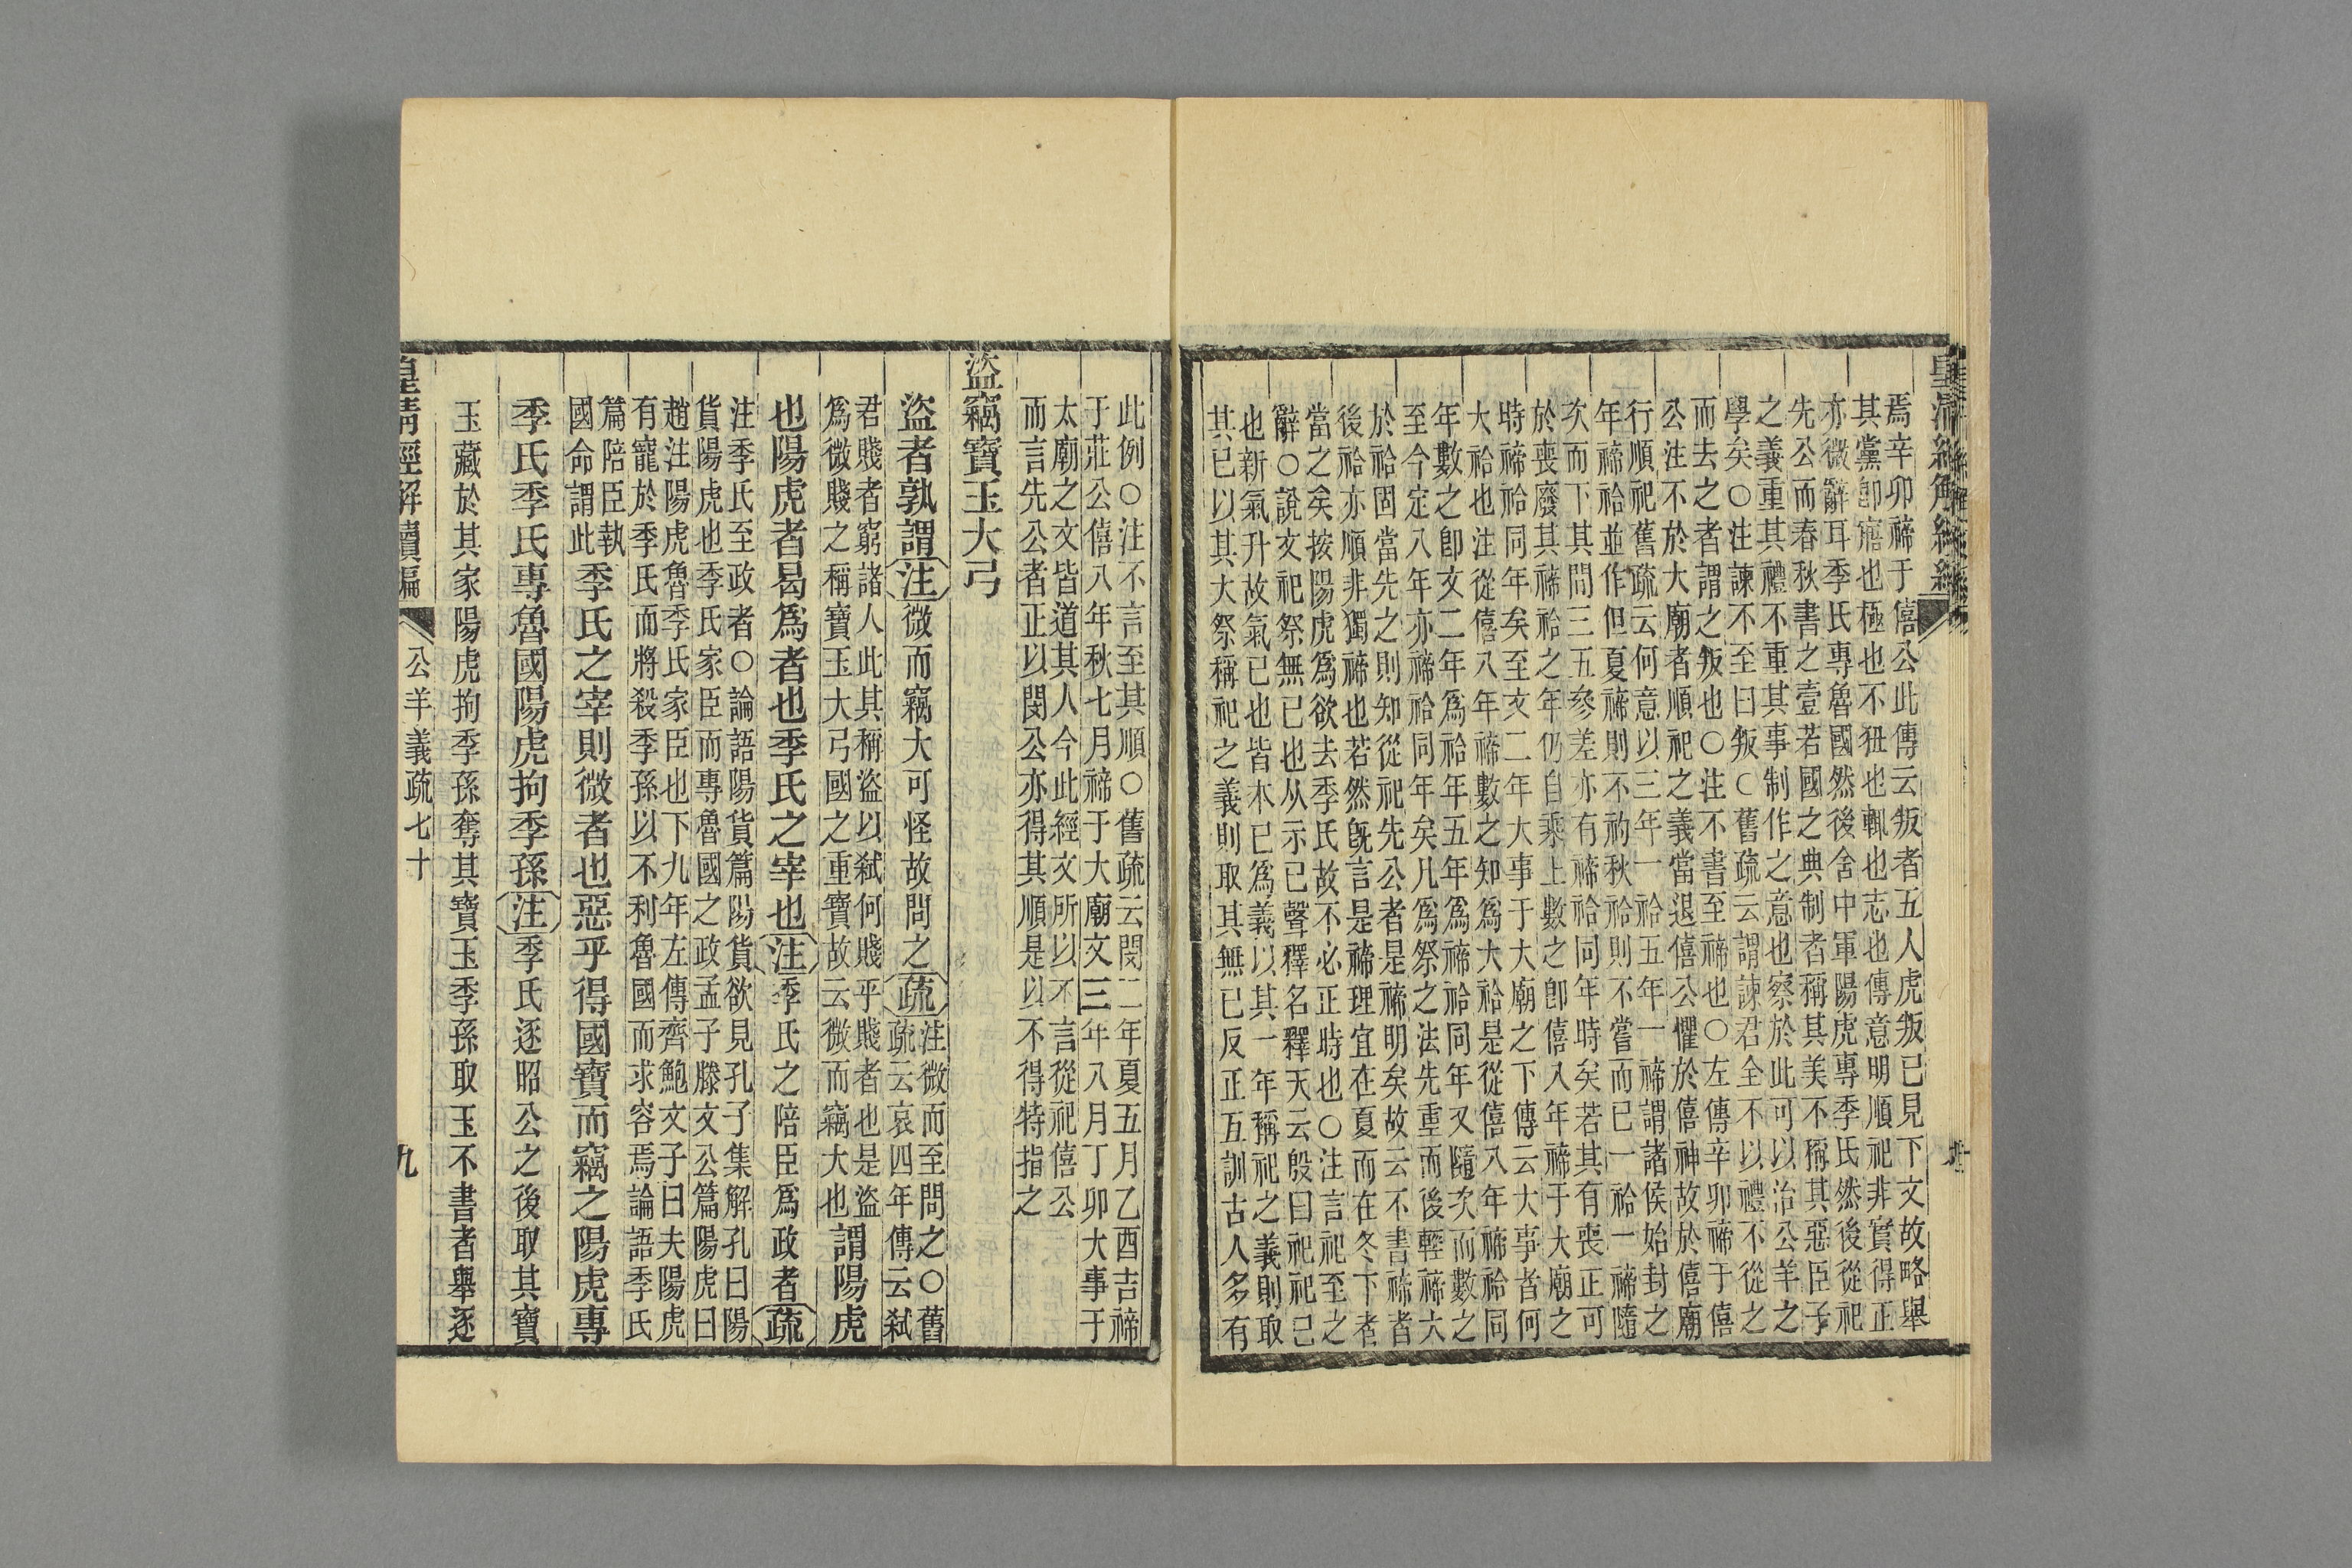 焉辛卯禘于僖公此傳云叛者五人虎叛已見下文故略舉
其黨卽寤也極也不狃也輒也志也傳意明順祀非實得正
亦微辭耳季氏專魯國然後舍中軍陽虎專季氏然後從祀
先公而春秋書之壹若國之典制者稱其美不稱其惡臣子
之義重其禮不重其事制作之意也察於此可以治公羊之
學矣○注諫不至曰叛○舊疏云謂諫君全不以禮不從之
而去之者謂之叛也○注不書至禘也○左傳辛卯禘于僖
公注不於大廟者順祀之義當退僖公懼於僖神故於僖廟
行順祀舊疏云何意以三年一祫五年一禘謂諸侯始封之
年禘祫並作但夏禘則不礿秋祫則不嘗而已一祫一禘隨
次而下其間三五參差亦有禘祫同年時矣若其有喪正可
於喪廢其禘祫之年仍自乘上數之卽僖八年禘于大廟之
時禘祫同年矣至文二年大事于大廟之下傳云大事者何
大祫也注從僖八年禘數之知爲大祫是從僖八年禘祫同
年數之卽文二年爲祫年五年爲禘祫同年又隨次而數之
至今定八年亦禘祫同年矣凡爲祭之法先重而後輕禘大
於祫固當先之則知從祀先公者是禘明矣故云不書禘者
後祫亦順非獨禘也若然旣言是禘理宜在夏而在冬下者
當之矣按陽虎爲欲去季氏故不必正時也○注言祀至之
辭○說文祀祭無已也从示已聲釋名釋天云殷曰祀祀已
也新氣升故氣已也皆本已爲義以其一年稱祀之義則取
其已以其大祭稱祀之義則取其無已反正互訓古人多有
此例○注不言至其順○舊疏云閔二年夏五月乙酉吉禘
于莊公僖八年秋七月禘于大廟文三年八月丁卯大事于
太廟之文皆道其人今此經文所以不言從祀僖公
而言先公者正以閔公亦得其順是以不得特指之
盜竊寶玉大弓
盜者孰謂注微而竊大可怪故問之疏注微而至問之○舊
疏云哀四年傳云弒
君賤者窮諸人此其稱盜以弒何賤乎賤者也是盜
爲微賤之稱寶玉大弓國之重寶故云微而竊大也謂陽虎
也陽虎者曷爲者也季氏之宰也注季氏之陪臣爲政者疏
注季氏至政者○論語陽貨篇陽貨欲見孔子集解孔曰陽
貨陽虎也季氏家臣而專魯國之政孟子滕文公篇陽虎曰
趙注陽虎魯季氏家臣也下九年左傳齊鮑文子曰夫陽虎
有寵於季氏而將殺季孫以不利魯國而求容焉論語季氏
篇陪臣執
國命謂此季氏之宰則微者也惡乎得國寶而竊之陽虎專
季氏季氏專魯國陽虎拘季孫注季氏逐昭公之後取其寶
玉藏於其家陽虎拘季孫奪其寶玉季孫取玉不書者舉逐
皇清經解續編 公羊義疏七十 九